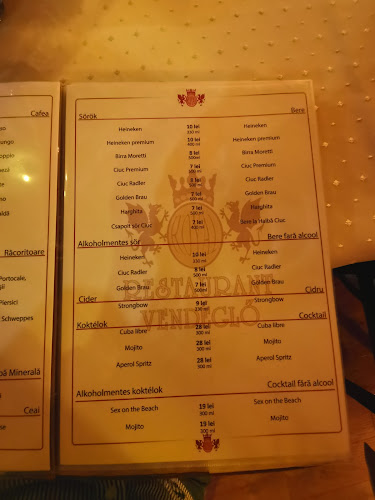 Cafea
Răcoritoare
Portocale,
Piersici
Schweppes
Minerală
Ceai
Sörök Bere
Heineken 10 lei Heineken
330 ml
Heineken premium 10 lei Heineken premium
400 ml
Birra Moretti 8 lei Birra Moretti
500ml
Ciuc Premium 7 lei Ciuc Premium
500 ml
Ciuc Radler 8 lei Ciuc Radler
500 ml
Golden Brau 7 lei Golden Brau
500 ml
Harghita 7 lei Harghita
500 ml
Csapolt sör Ciuc 7 lei Bere la Halbă Ciuc
400 ml
Alkoholmentes sör Bere fară alcool
Heineken 10 lei Heineken
330 ml
Ciuc Radler 8 lei Ciuc Radler
500 ml
Golden Brau 7 lei Golden Brau
500 ml
RESTAURANT
VENDÉGLŐ
Cider Cidru
Strongbow 9 lei Strongbow
330 ml
Koktélok Cocktail
Cuba libre 28 lei Cuba libre
300 ml
Mojito 28 lei Mojito
300 ml
Aperol Spritz 28 lei Aperol Spritz
300 ml
Alkoholmentes koktélok Cocktail fără alcool
Sex on the Beach 19 lei Sex on the Beach
300 ml
Mojito 19 lei Mojito
300 ml